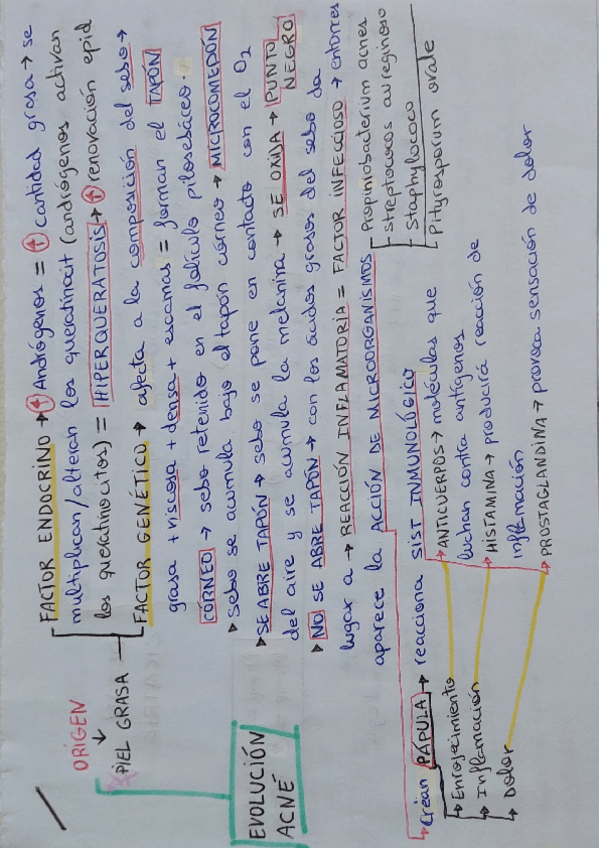 ORIGEN
↓
PIEL GRASA
EVOLUCIÓN
ACNÉ
FACTOR ENDOCRINO → ↑ Andrógenos = ↑ cantidad grasa → se
multiplican/alteran los queratinocit (andrógenos activan
los queratinocitos) = HIPERQUERATOSIS → ↑ renovación epid
FACTOR GENÉTICO → afecta a la composición del sebo →
grasa + viscosa + densa + escamas = forman el TAPÓN
CÓRNEO → sebo retenido en el folículo pilosebáceo.
▸ Sebo se acumula bajo el tapón córneo → MICROCOMEDÓN
▸ SE ABRE TAPÓN → sebo se pone en contacto con el O2
del aire y se acumula la melanina → SE OXIDA → PUNTO
NEGRO
▸ NO SE ABRE TAPÓN → con los ácidos grasos del sebo da
lugar a → REACCIÓN INFLAMATORIA = FACTOR INFECCIOSO → entonces
aparece la ACCIÓN DE MICROORGANISMOS
Propiniobacterium acnes
streptococos aureginoso
Staphylococo
Pityrosporum ovale
Crean PÁPULA → reacciona SIST INMUNOLÓGICO
↳ Enrojecimiento
↳ Inflamación
↳ Dolor
▸ ANTICUERPOS → moléculas que
luchan contra antígenos
▸ HISTAMINA → producirá reacción de
inflamación
▸ PROSTAGLANDINA → provoca sensación de dolor